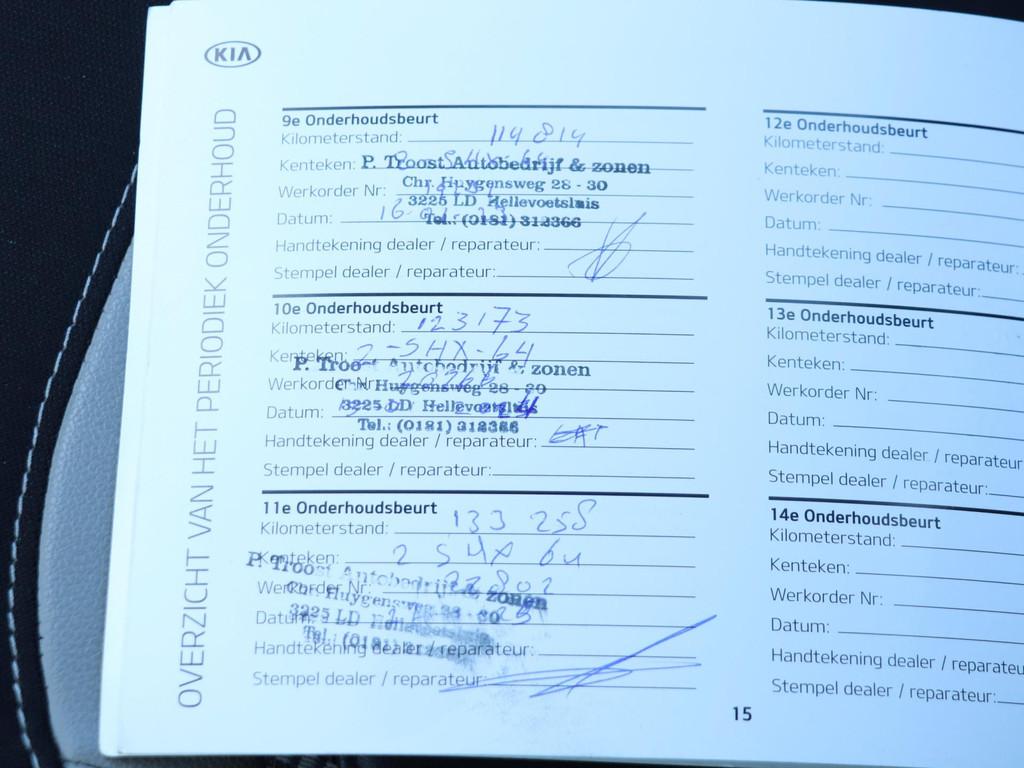 KIA
OVERZICHT VAN HET PERIODIEK ONDERHOUD
9e Onderhoudsbeurt
Kilometerstand: 114 814
Kenteken:
P. Troost Autobedrijf & zonen
Werkorder Nr:
Chr. Huygensweg 28 - 30
3225 LD Hellevoetsluis
Datum: 16-01-
Tel.: (0181) 312366
Handtekening dealer / reparateur:
Stempel dealer / reparateur:
10e Onderhoudsbeurt
Kilometerstand: 123173
Kenteken: 2-SHX-64
P. Troost Autobedrijf & zonen
Werkorder Nr:
Chr. Huygensweg 28 - 30
Datum:
3225 LD Hellevoetsluis
Tel.: (0181) 312366
Handtekening dealer / reparateur:
Stempel dealer / reparateur:
11e Onderhoudsbeurt
Kilometerstand: 133 258
Kenteken: 2 SHX 64
P. Troost Autobedrijf & zonen
Werkorder Nr: 22802
Chr. Huygensweg 28 - 30
Datum:
3225 LD Hellevoetsluis
Tel.: (0181)
Handtekening dealer / reparateur:
Stempel dealer / reparateur:
12e Onderhoudsbeurt
Kilometerstand:
Kenteken:
Werkorder Nr:
Datum:
Handtekening dealer / reparateur:
Stempel dealer / reparateur:
13e Onderhoudsbeurt
Kilometerstand:
Kenteken:
Werkorder Nr:
Datum:
Handtekening dealer / reparateur
Stempel dealer / reparateur:
14e Onderhoudsbeurt
Kilometerstand:
Kenteken:
Werkorder Nr:
Datum:
Handtekening dealer / reparateu
Stempel dealer / reparateur:
15